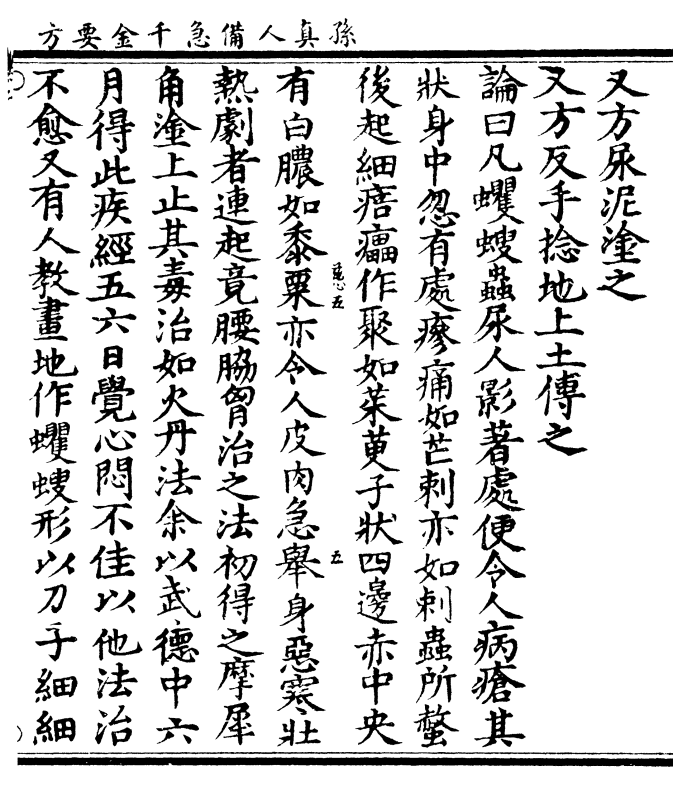 孫真人備急千金要方
又方尿泥塗之
又方反手捻地上土傅之
論曰凡蠼螋蟲尿人影著處便令人病瘡其
狀身中忽有處瘮痛如芒刺亦如刺蟲所螫
後起細痦㿔作聚如茱萸子狀四邊赤中央
有白膿如黍粟亦令人皮肉急舉身惡寒壯
熱劇者連起竟腰脇胷治之法初得之摩犀
角塗上止其毒治如火丹法余以武德中六
月得此疾經五六日覺心悶不佳以他法治
不愈又有人教畫地作蠼螋形以刀子細細